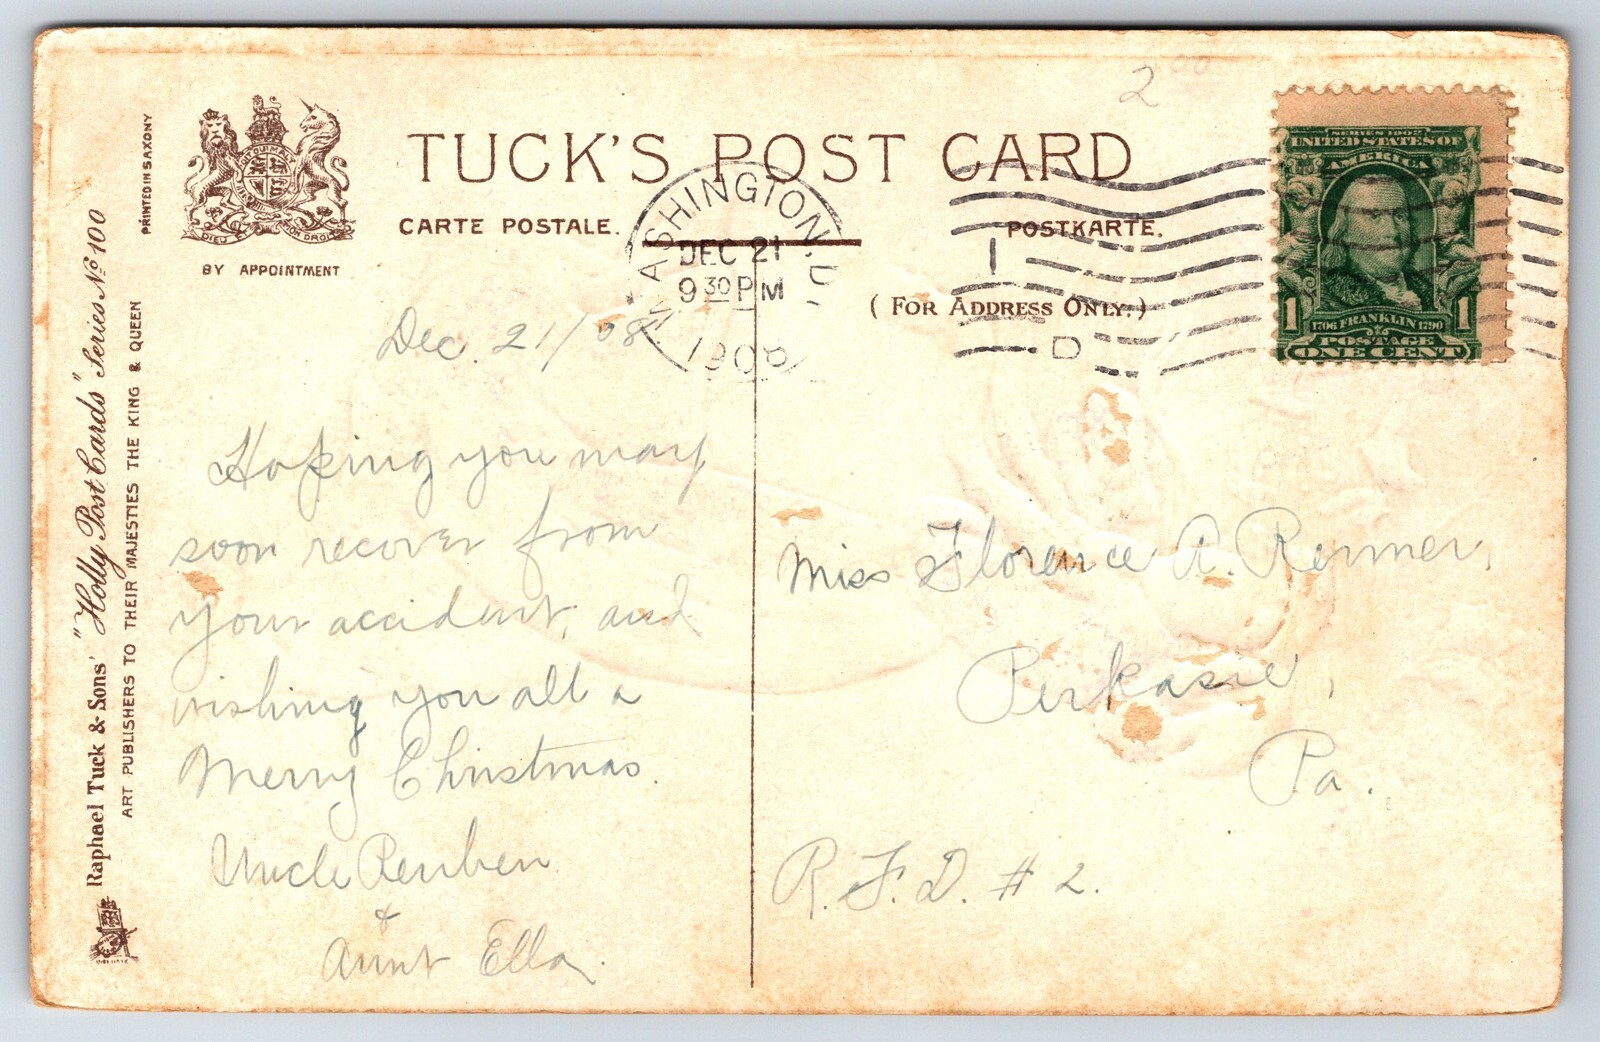 2
TUCK'S POST CARD
CARTE POSTALE.
POSTKARTE.
(FOR ADDRESS ONLY.)
PRINTED IN SAXONY
DIEU ET MON DROIT
BY APPOINTMENT
Raphael Tuck & Sons' "Holly Post Cards" Series No 100
ART PUBLISHERS TO THEIR MAJESTIES THE KING & QUEEN
WASHINGTON, D.
DEC 21
9 30 PM
1908
1
D
SERIES 1902
UNITED STATES OF
AMERICA
1 1
1706 FRANKLIN 1790
POSTAGE
ONE CENT
Dec. 21/08.
Hoping you may
soon recover from
your accident, and
wishing you all a
Merry Christmas.
Uncle Reuben
&
Aunt Ella.
Miss Florence A. Renner,
Perkasie,
Pa.
R.F.D. #2.